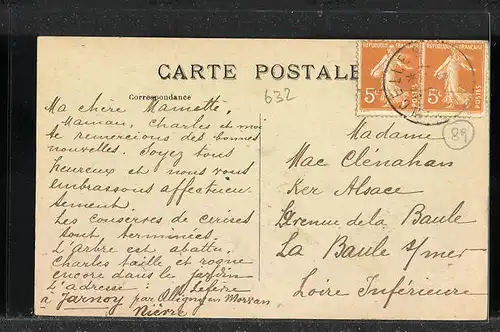 CARTE POSTALE
Correspondance
632
RÉPUBLIQUE FRANÇAISE
5c
POSTES
RÉPUBLIQUE FRANÇAISE
5c
POSTES
89
Ma chère Mamette,
Maman, Charles et moi
te remercions des bonnes
nouvelles. Soyez tous
heureux et nous vous
embrassons affectueu
sement.
Les conserves de cerises
sont terminées.
L'arbre est abattu,
Charles taille et rogne
encore dans le jardin
L'adresse :
à Jarnoy par Alligny en Morvan
Nièvre
Madame
Mac Clénahan
Ker Alsace
Avenue de la Baule
La Baule s/mer
Loire Inférieure